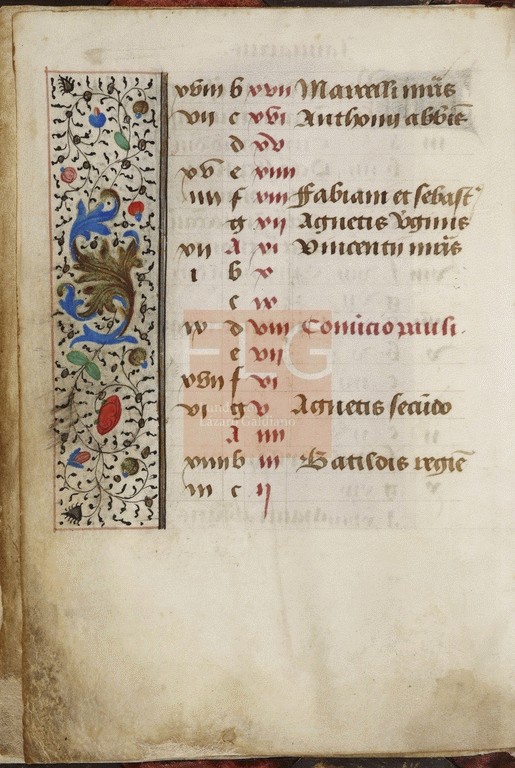 xviii b xvii Marcelli mris
vii c xvi Anthonij abbis
d xv
xv e xiiii
iiii f xiii Fabiani et sebast
g xii Agnetis vginis
xii A xi vincentii mris
i b x
c ix
ix d viii Conuicio pauli.
e vii
xvii f vi
vi g v Agnetis secundo
A iiii
xiiii b iii Batildis regine
iii c ij
FLG
Lázaro Galdiano